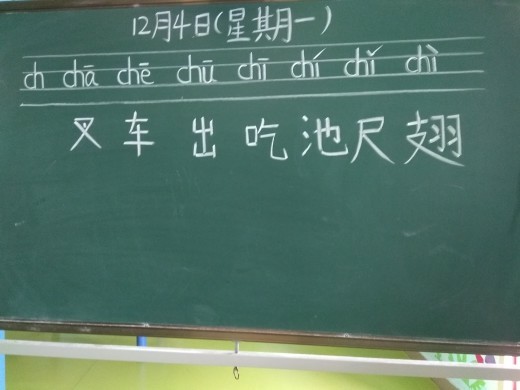 12月4日(星期一)
ch chā chē chū chī chí chǐ chì
叉 车 出 吃 池 尺 翅